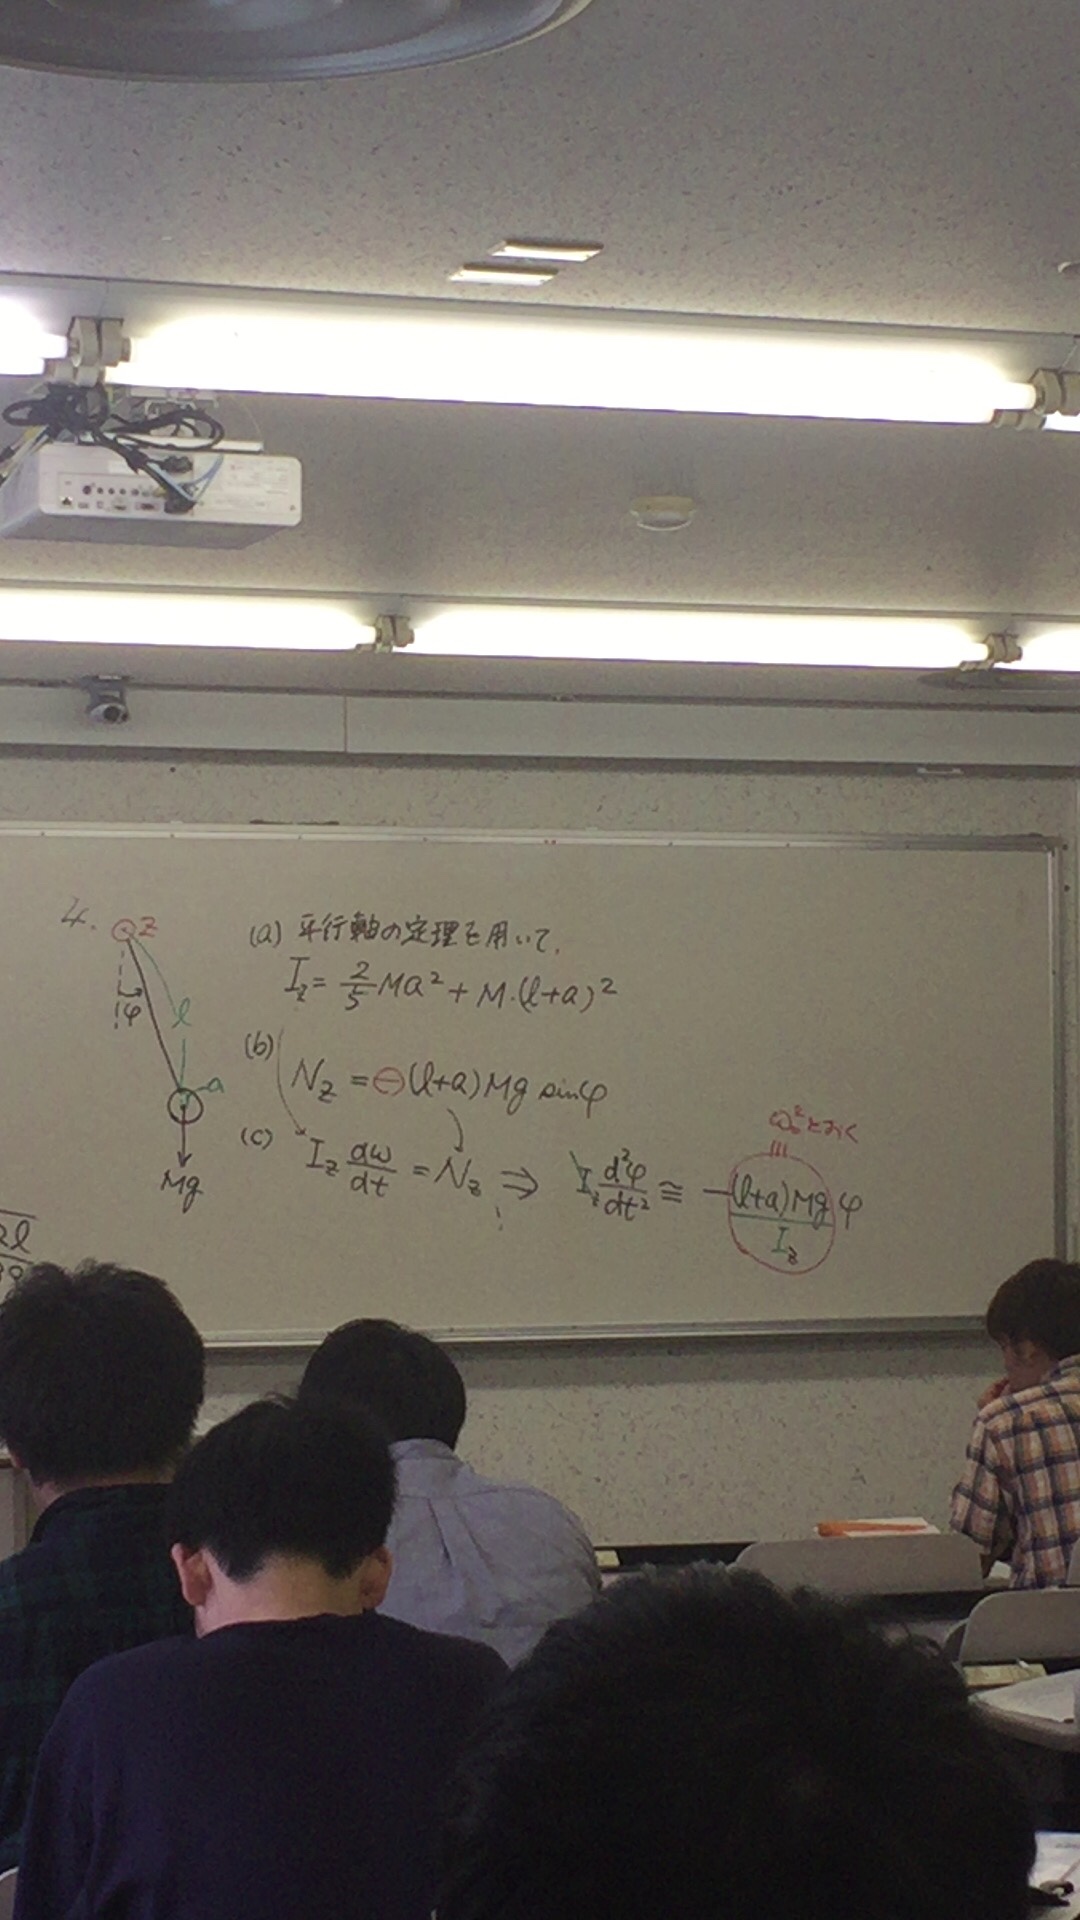 4.
z
φ
l
a
Mg
(a) 平行軸の定理を用いて、
I_z = 2/5 Ma² + M・(l+a)²
(b)
N_z = ⊖(l+a)Mg sinφ
(c) I_z dω/dt = N_z ⇒ I_z d²φ/dt² ≅ -(l+a)Mg/I_z φ
ω₀²とおく
2l